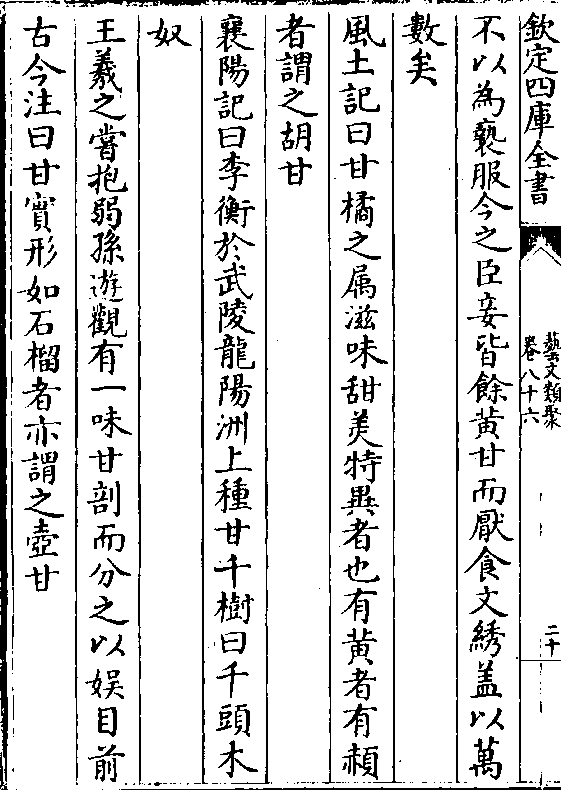 欽定四庫全書
藝文類聚
卷八十六
二十
不以為褻服今之臣妾皆餘黄甘而厭食文綉盖以萬
數矣
風土記曰甘橘之属滋味甜美特異者也有黄者有赬
者謂之胡甘
襄陽記曰李衡於武陵龍陽洲上種甘千樹曰千頭木
奴
王羲之嘗抱弱孫遊觀有一味甘剖而分之以娱目前
古今注曰甘實形如石榴者亦謂之壺甘